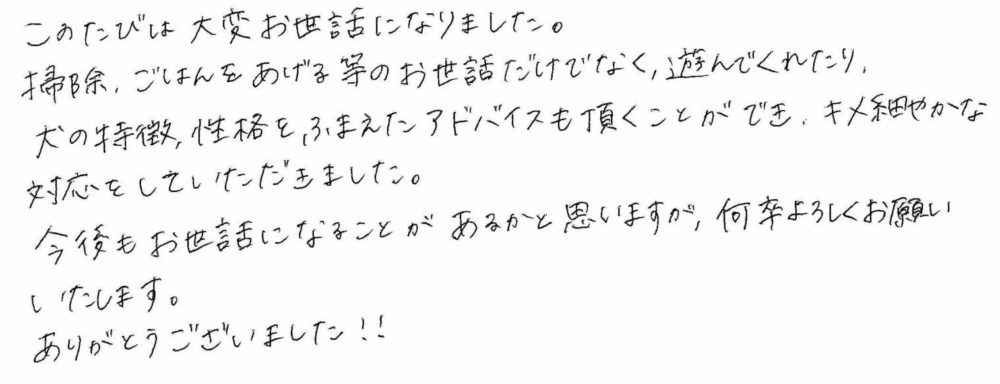 このたびは大変お世話になりました。
掃除、ごはんをあげる等のお世話だけでなく、遊んでくれたり、
犬の特徴、性格を、ふまえたアドバイスも頂くことができ、キメ細やかな
対応をしていただきました。
今後もお世話になることがあるかと思いますが、何卒よろしくお願い
いたします。
ありがとうございました!!